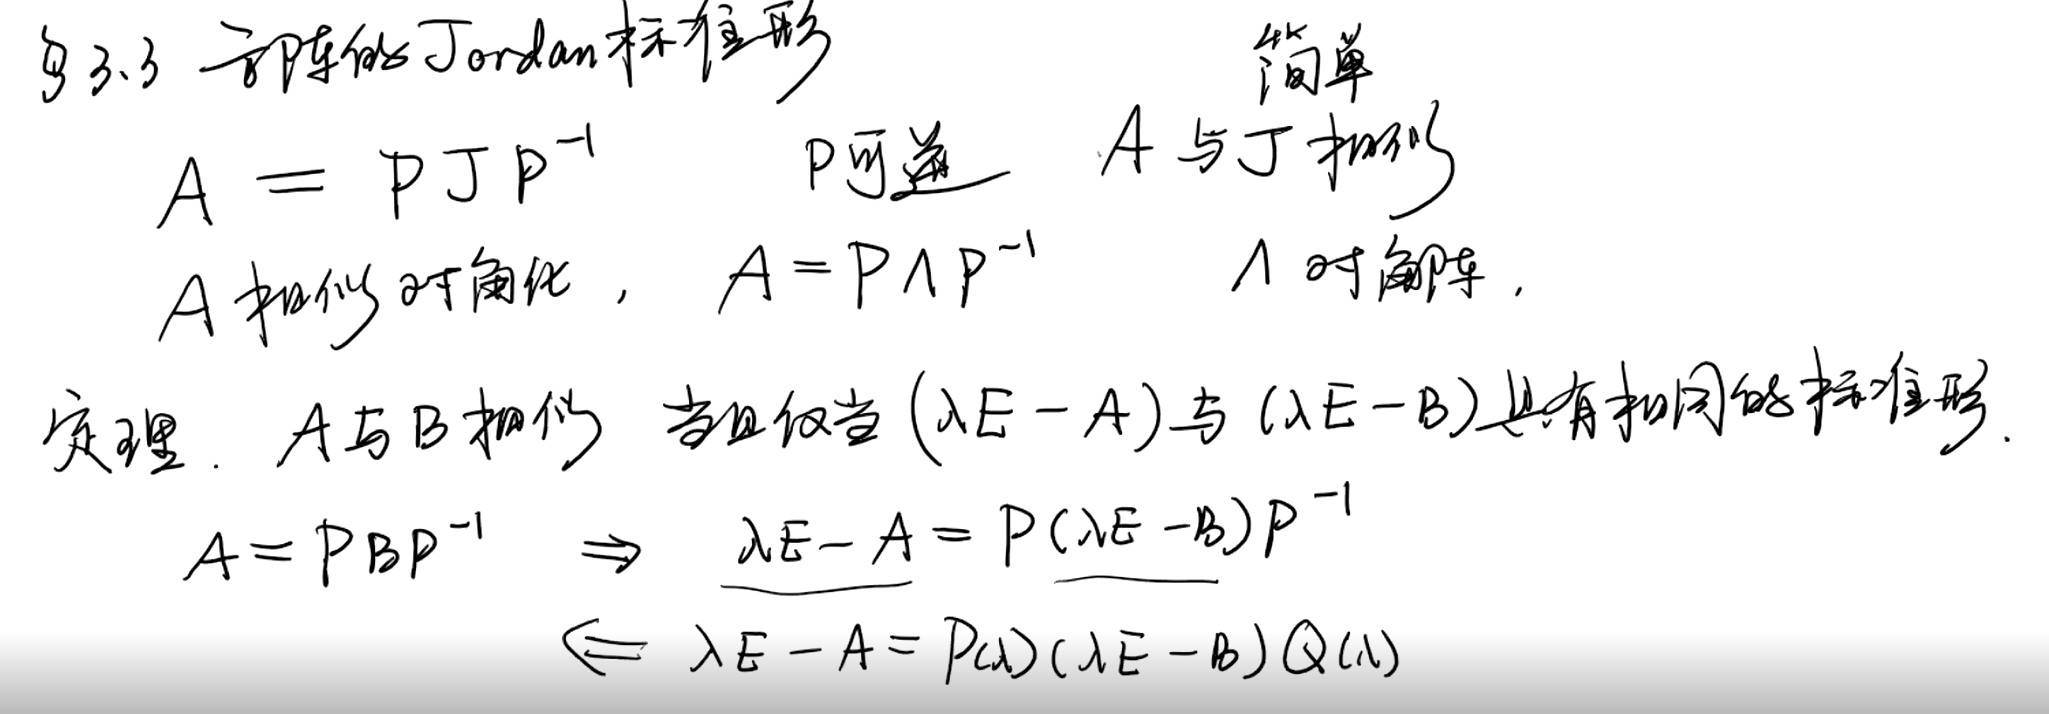 §3.3 方阵的Jordan标准形
简单
A = PJP⁻¹ P可逆 A与J相似
A相似对角化, A = PΛP⁻¹ Λ对角阵.
定理. A与B相似 当且仅当 (λE - A) 与 (λE - B) 具有相同的标准形.
A = PBP⁻¹ ⇒ λE - A = P(λE - B)P⁻¹
⇐ λE - A = P(λ)(λE - B)Q(λ)